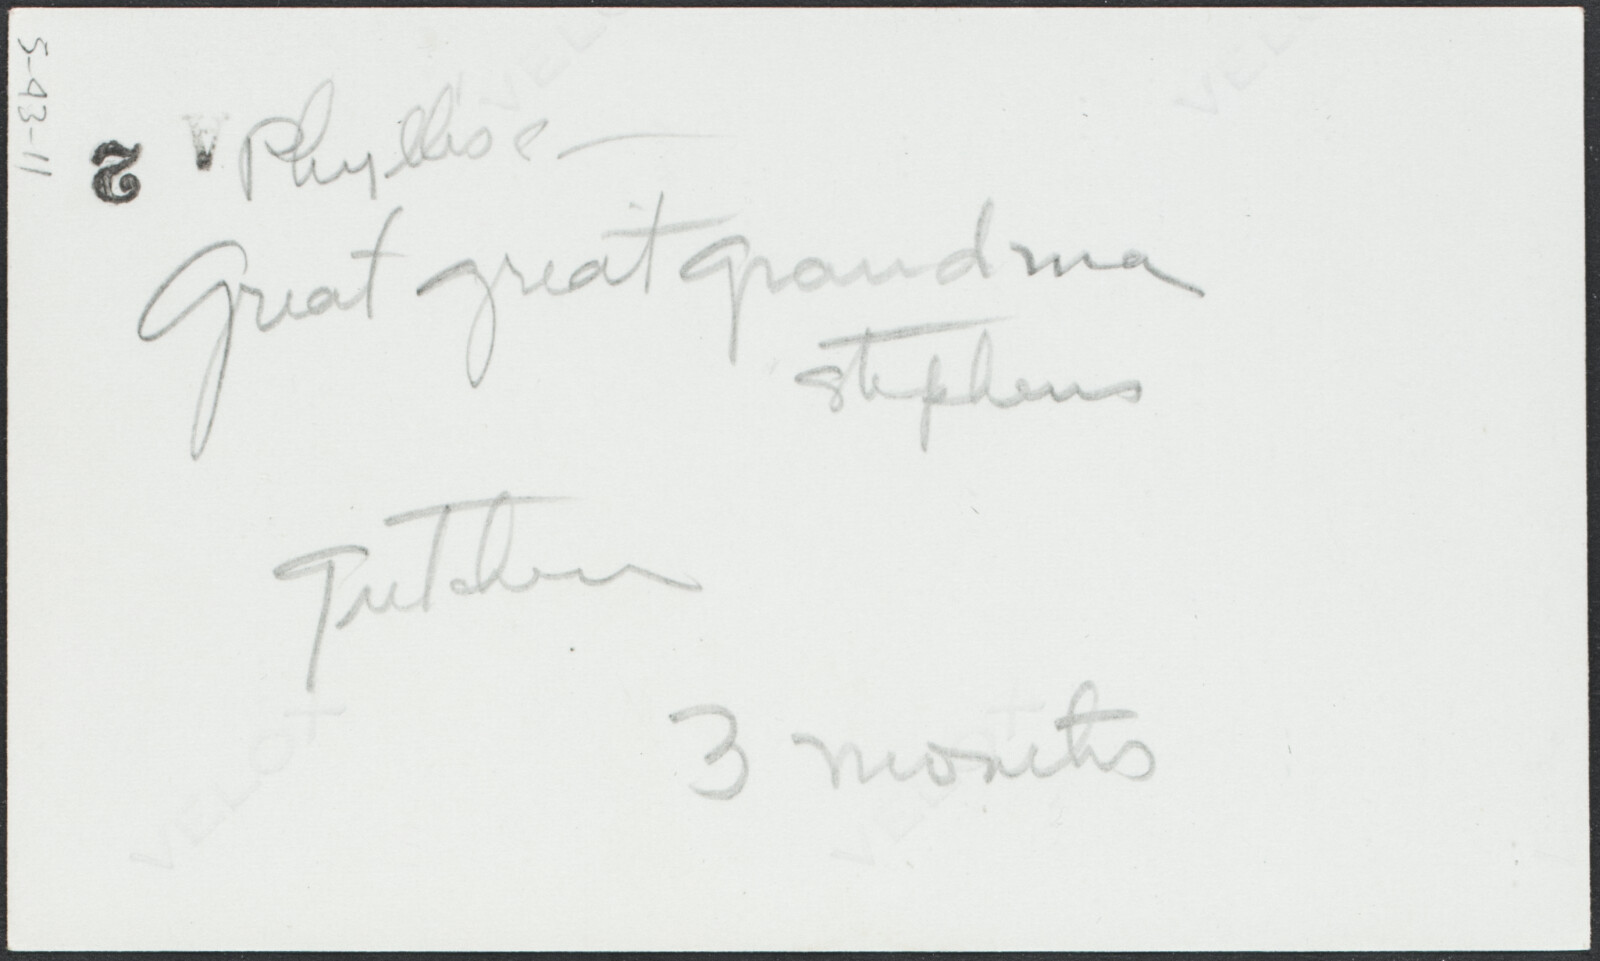 S-93-11
2
Phyllis
Great great grandma
Stephens
Gretchen
3 months
VELOX
VELOX
VELOX
VELOX